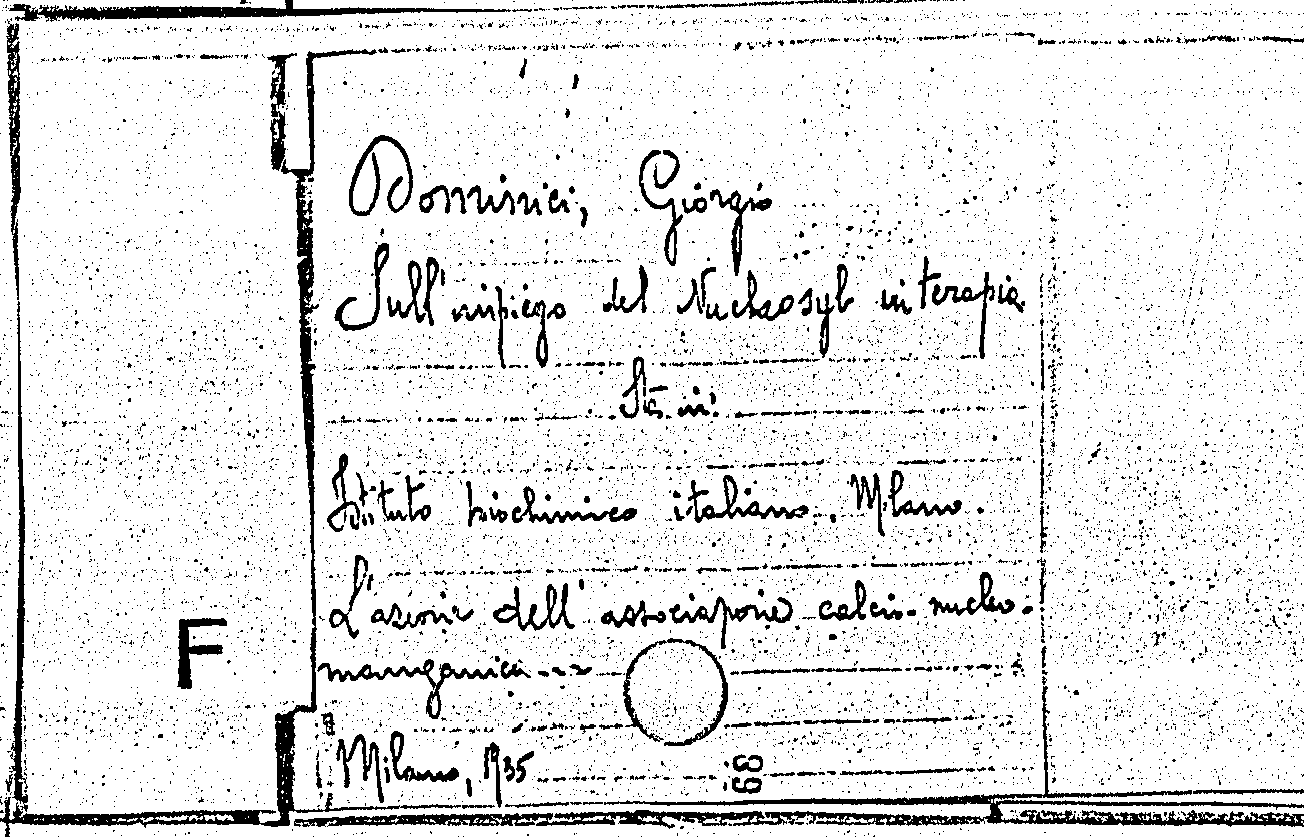 Dominici, Giorgio
Sull'impiego del Nucleosyl in terapia.
Sta in:
Istituto biochimico italiano, Milano.
L'azione dell'associazione calcio-nucleo-
manganica ---
F
Milano, 1935
68